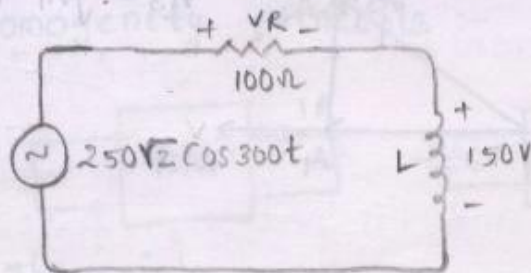 + VR -
100Ω
250√2 Cos 300t
+
L 150V
-